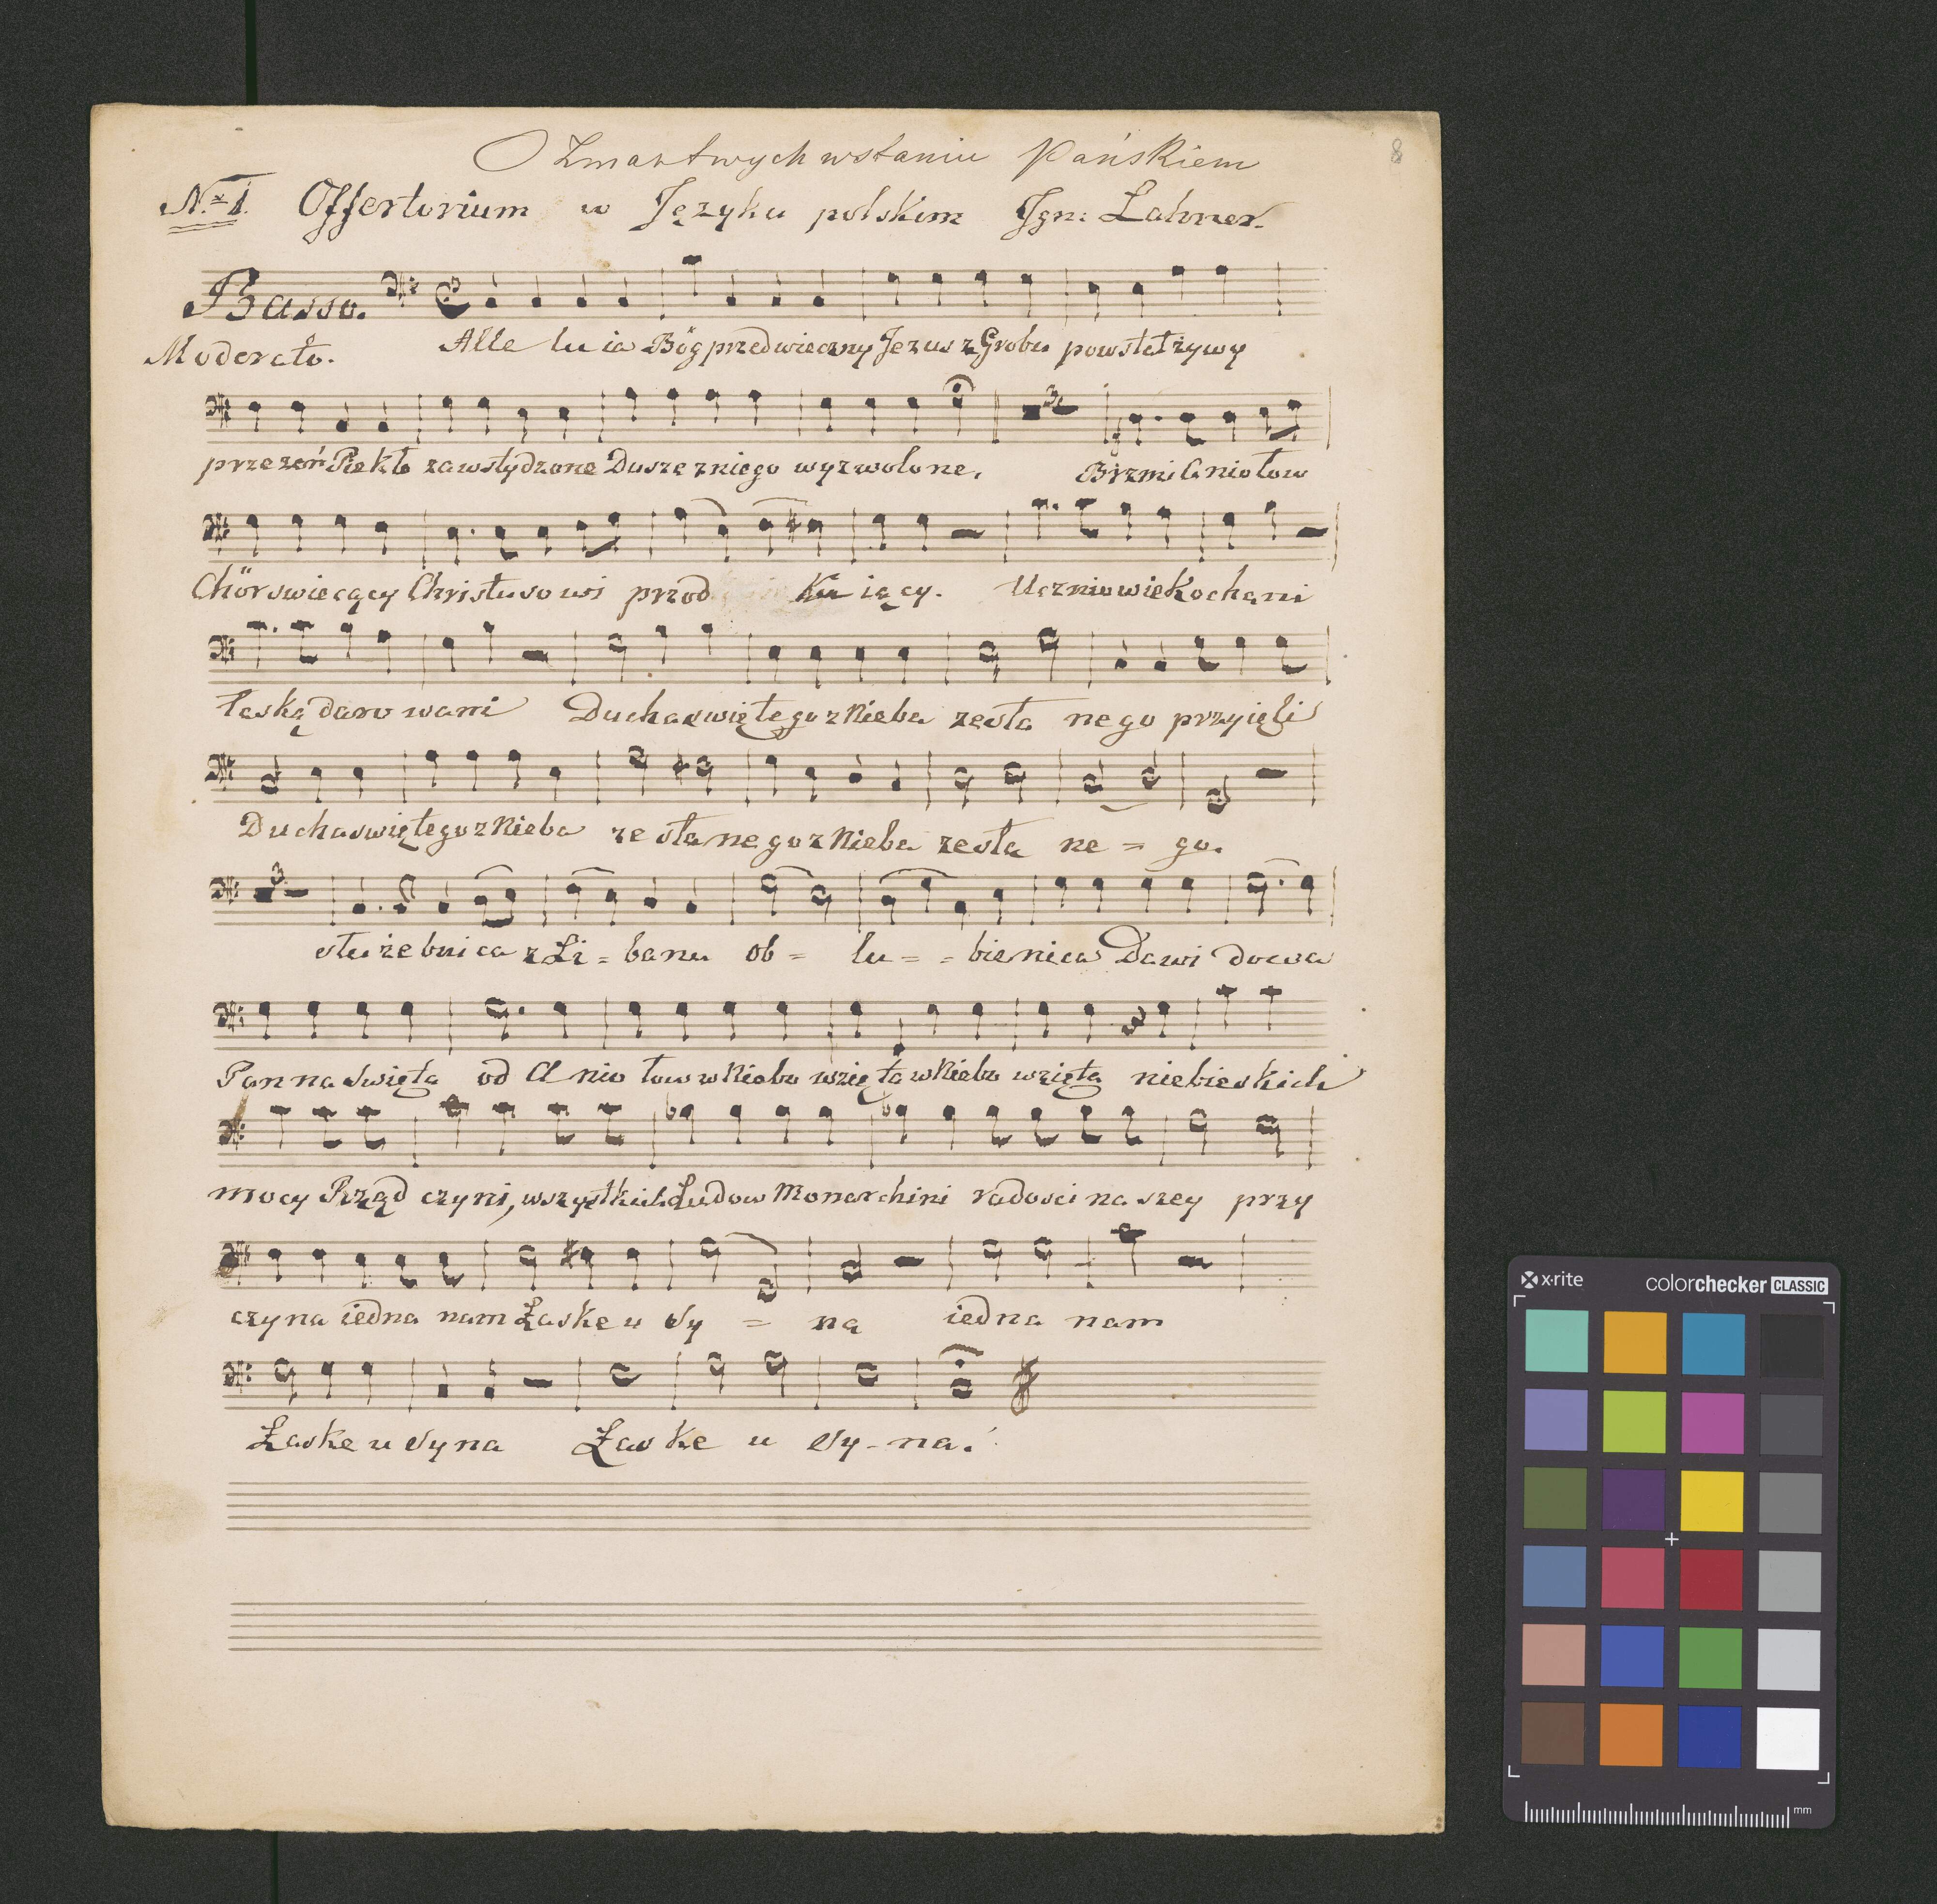 O Zmartwychwstaniu Pańskiem
8
No 1. Offertorium w Języku polskim Ign: Łahner.
Basso.
Moderato.
Alle lu ia Bög przedwieczny Jezus z Grobu powstał żywy
3
przezeń Piekło zawstydzone Dusze zniego wyzwolone, Brzmi Aniołow
Chör swiecący Christusowi przod ku iący. Uczniowie Kochani
łaską daro wani Ducha swiętego z Nieba zesła nego przyięli
Ducha swiętego z Nieba ze słanego z Nieba zesła ne = go.
3
służebnica z Li = banu ob = lu = = bienica Dawi dowa
Panna Swięta od Anio łow w Niebo wzięta w Niebo wzięta niebieskich
mocy Rząd czyni, wszystkich Ludow Monarchini radosci na szey przy
czyna iedna nam Łaske u Sy = na iedna nam
Łaske u Syna Łaske u Sy - na.
x·rite
colorchecker CLASSIC
mm